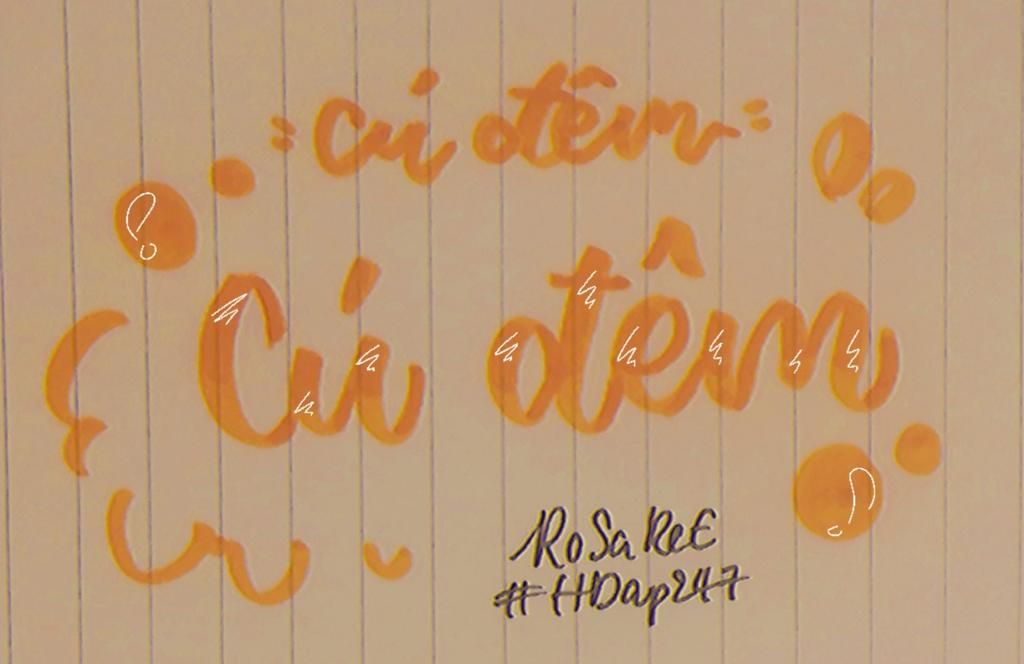 = Cú đêm =
Cú đêm
RoSa ReE
#HDap247